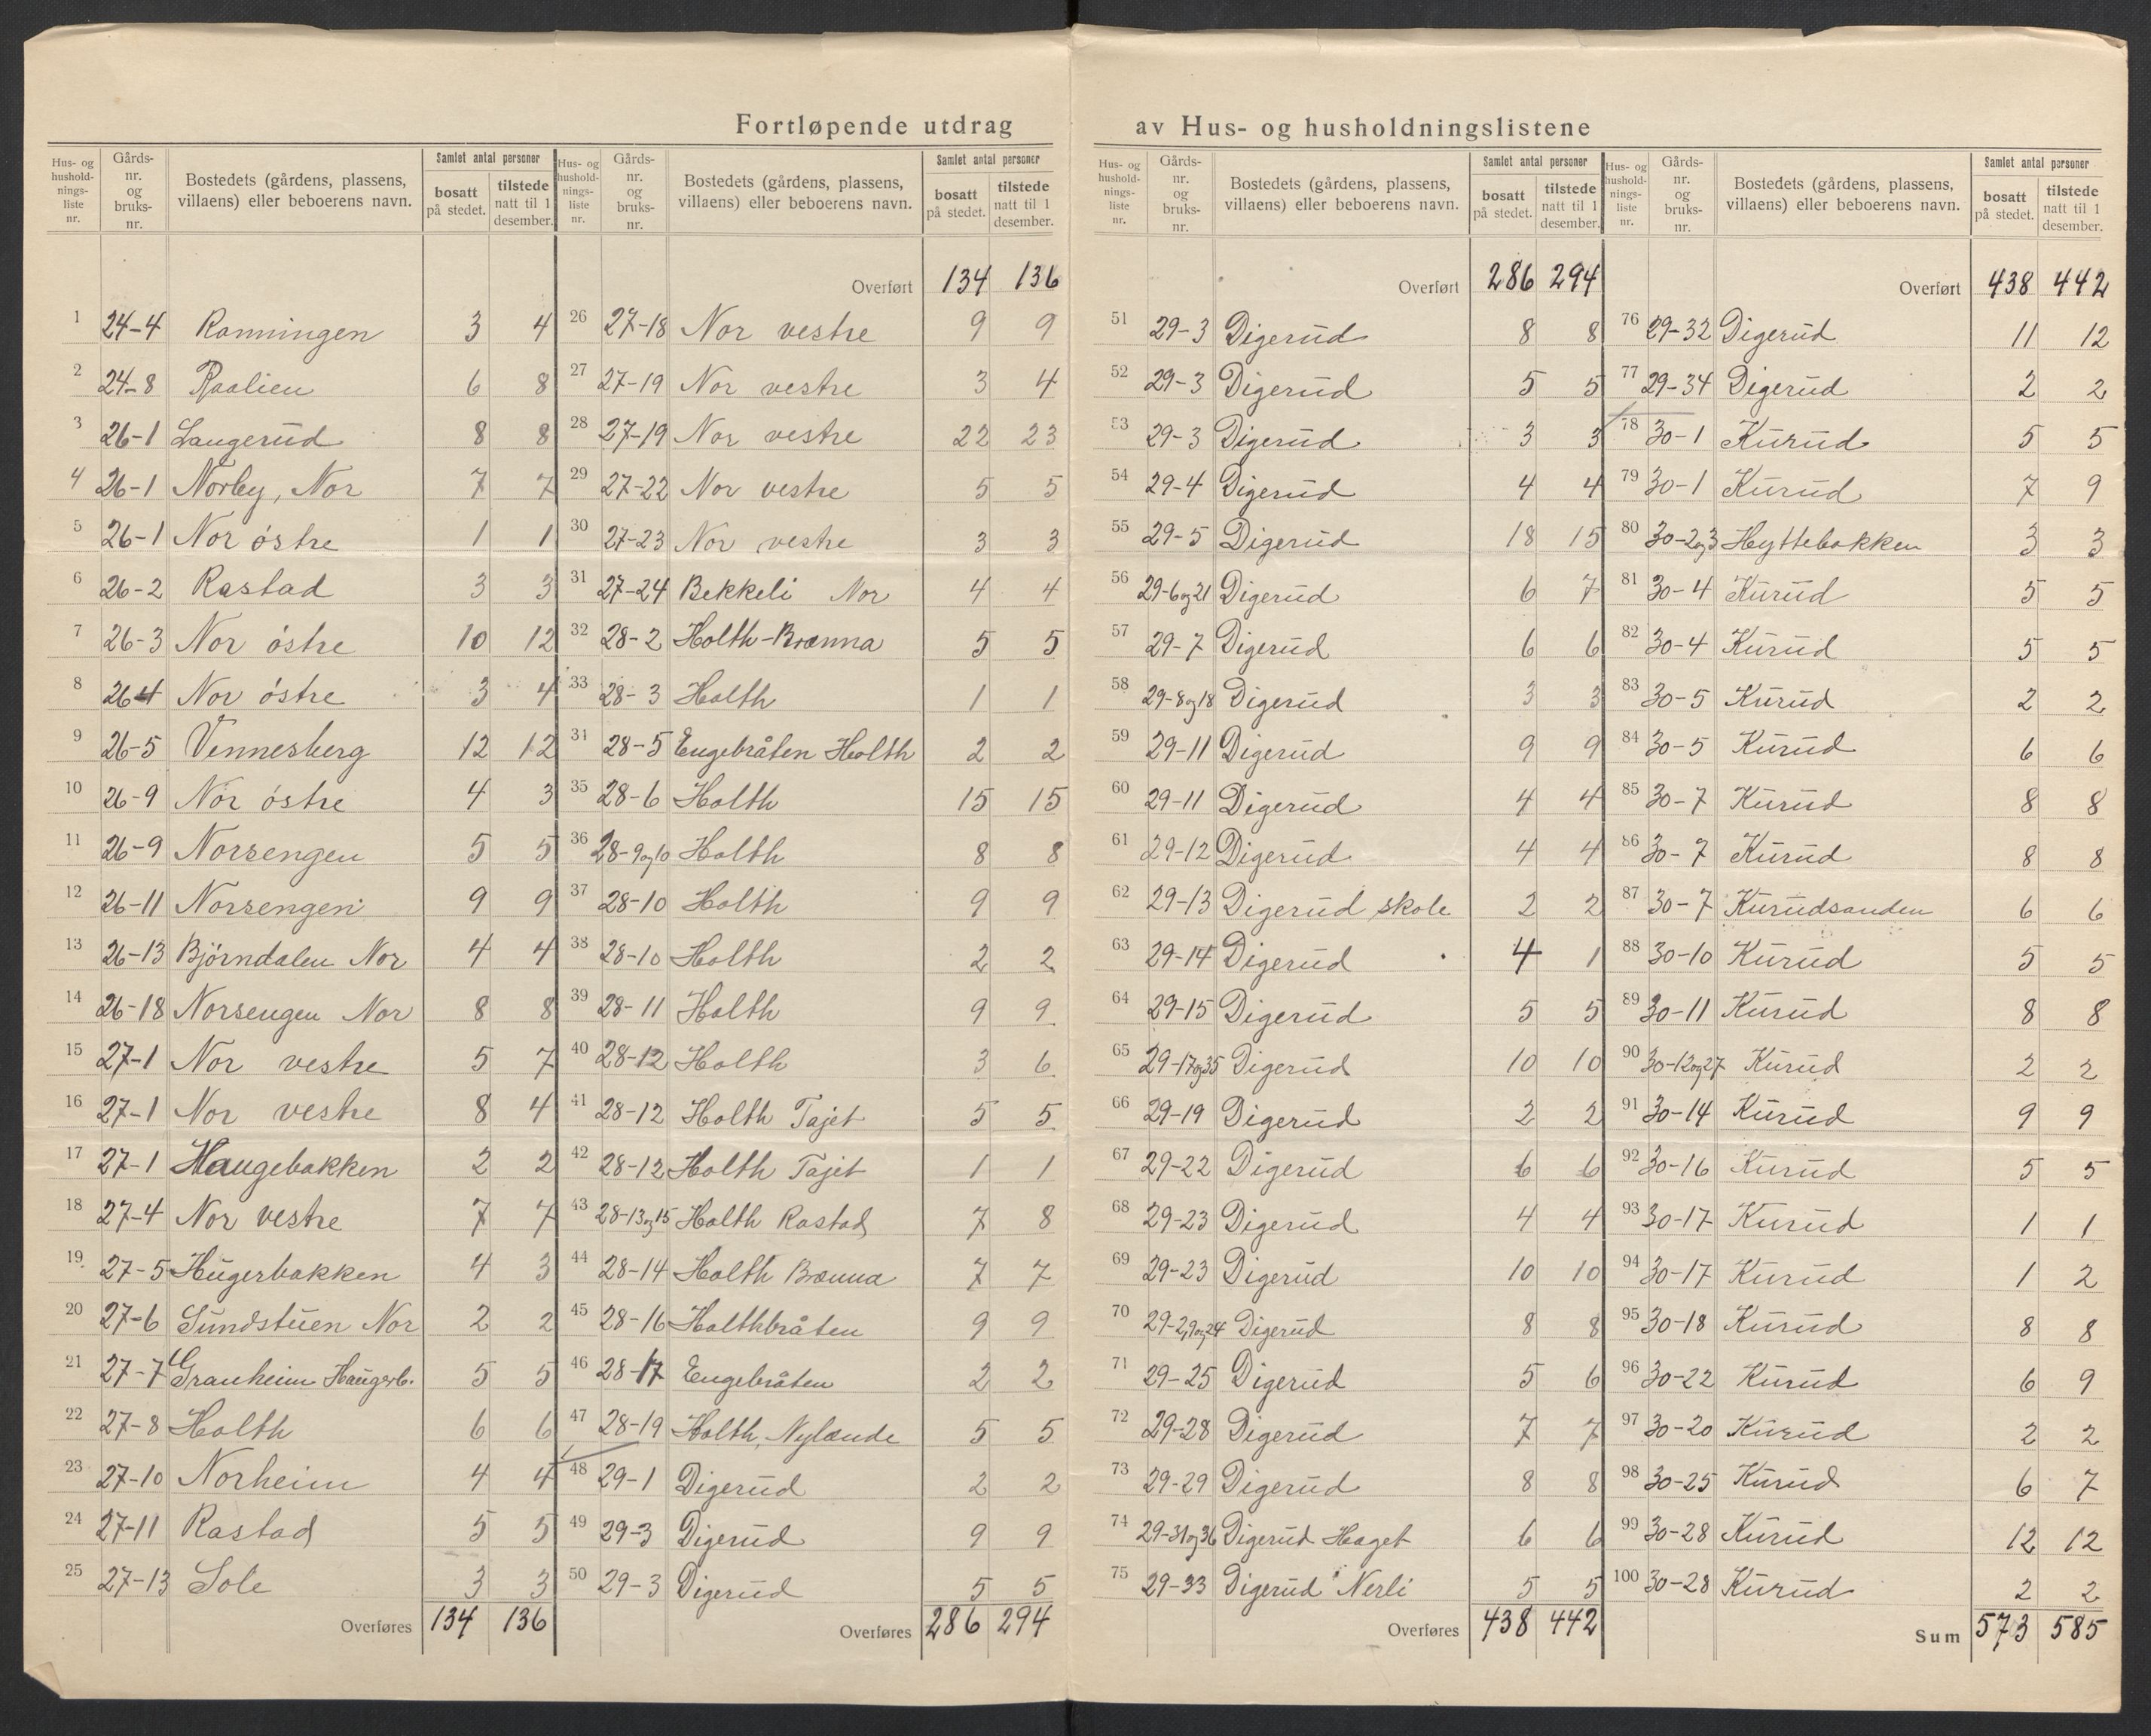 Fortløpende utdrag av Hus- og husholdningslistene
Hus- og husholdnings-liste nr. | Gårds-nr. og bruks-nr. | Bostedets (gårdens, plassens, villaens) eller beboerens navn. | Samlet antal personer | bosatt på stedet. | tilstede natt til 1 desember.
1 24-4 Ronningen 3 4
2 24-8 Raalien 6 8
3 26-1 Laugerud 8 8
4 26-1 Norby, Nor 7 7
5 26-1 Nor østre 1 1
6 26-2 Rastad 3 3
7 26-3 Nor østre 10 12
8 26-4 Nor østre 3 4
9 26-5 Vennesberg 12 12
10 26-9 Nor østre 4 3
11 26-9 Norsengen 5 5
12 26-11 Norsengen 9 9
13 26-13 Bjørndalen Nor 4 4
14 26-18 Norsengen Nor 8 8
15 27-1 Nor vestre 5 7
16 27-1 Nor vestre 8 4
17 27-1 Haugebakken 2 2
18 27-4 Nor vestre 7 7
19 27-5 Hugerbakken 4 3
20 27-6 Sundstuen Nor 2 2
21 27-7 Granheim Haugerb. 5 5
22 27-8 Holth 6 6
23 27-10 Norheim 4 4
24 27-11 Rastad 5 5
25 27-13 Sole 3 3
Overføres 134 136
Hus- og husholdnings-liste nr. | Gårds-nr. og bruks-nr. | Bostedets (gårdens, plassens, villaens) eller beboerens navn. | Samlet antal personer | bosatt på stedet. | tilstede natt til 1 desember.
Overført 134 136
26 27-18 Nor vestre 9 9
27 27-19 Nor vestre 3 4
28 27-19 Nor vestre 22 23
29 27-22 Nor vestre 5 5
30 27-23 Nor vestre 3 3
31 27-24 Bekkeli Nor 4 4
32 28-2 Holth-Brænna 5 5
33 28-3 Holth 1 1
34 28-5 Engebråten Holth 2 2
35 28-6 Holth 15 15
36 28-9og10 Holth 8 8
37 28-10 Holth 9 9
38 28-10 Holth 2 2
39 28-11 Holth 9 9
40 28-12 Holth 3 6
41 28-12 Holth Tajet 5 5
42 28-12 Holth Tajet 1 1
43 28-13og15 Holth Rastad 7 8
44 28-14 Holth Brænna 7 7
45 28-16 Holthbråten 9 9
46 28-17 Engebråten 2 2
47 28-19 Holth, Nylænde 5 5
48 29-1 Digerud 2 2
49 29-3 Digerud 9 9
50 29-3 Digerud 5 5
Overføres 286 294
Hus- og husholdnings-liste nr. | Gårds-nr. og bruks-nr. | Bostedets (gårdens, plassens, villaens) eller beboerens navn. | Samlet antal personer | bosatt på stedet. | tilstede natt til 1 desember.
Overført 286 294
51 29-3 Digerud 8 8
52 29-3 Digerud 5 5
53 29-3 Digerud 3 3
54 29-4 Digerud 4 4
55 29-5 Digerud 18 15
56 29-6og21 Digerud 6 7
57 29-7 Digerud 6 6
58 29-8og18 Digerud 3 3
59 29-11 Digerud 9 9
60 29-11 Digerud 4 4
61 29-12 Digerud 4 4
62 29-13 Digerud skole 2 2
63 29-14 Digerud 4 1
64 29-15 Digerud 5 5
65 29-17og35 Digerud 10 10
66 29-19 Digerud 2 2
67 29-22 Digerud 6 6
68 29-23 Digerud 4 4
69 29-23 Digerud 10 10
70 29-2,9og24 Digerud 8 8
71 29-25 Digerud 5 6
72 29-28 Digerud 7 7
73 29-29 Digerud 8 8
74 29-31og36 Digerud Haget 6 6
75 29-33 Digerud Nerli 5 5
Overføres 438 442
Hus- og husholdnings-liste nr. | Gårds-nr. og bruks-nr. | Bostedets (gårdens, plassens, villaens) eller beboerens navn. | Samlet antal personer | bosatt på stedet. | tilstede natt til 1 desember.
Overført 438 442
76 29-32 Digerud 11 12
77 29-34 Digerud 2 2
78 30-1 Kurud 5 5
79 30-1 Kurud 7 9
80 30-2og3 Hyttebakken 3 3
81 30-4 Kurud 5 5
82 30-4 Kurud 5 5
83 30-5 Kurud 2 2
84 30-5 Kurud 6 6
85 30-7 Kurud 8 8
86 30-7 Kurud 8 8
87 30-7 Kurudsanden 6 6
88 30-10 Kurud 5 5
89 30-11 Kurud 8 8
90 30-12og27 Kurud 2 2
91 30-14 Kurud 9 9
92 30-16 Kurud 5 5
93 30-17 Kurud 1 1
94 30-17 Kurud 1 2
95 30-18 Kurud 8 8
96 30-22 Kurud 6 9
97 30-20 Kurud 2 2
98 30-25 Kurud 6 7
99 30-28 Kurud 12 12
100 30-28 Kurud 2 2
Sum 573 585